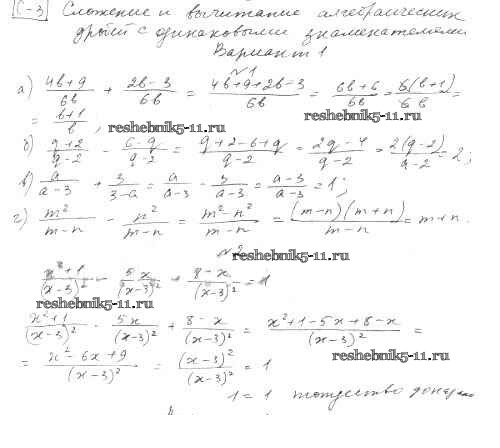 С-3 Сложение и вычитание алгебраических
дробей с одинаковыми знаменателями
Вариант 1
№1
а) (4b+9)/(6b) + (2b-3)/(6b) = (4b+9+2b-3)/(6b) = (6b+6)/(6b) = 6(b+1)/(6b) =
= (b+1)/b,
reshebnik5-11.ru
reshebnik5-11.ru
б) (q+2)/(q-2) - (6-q)/(q-2) = (q+2-6+q)/(q-2) = (2q-4)/(q-2) = 2(q-2)/(q-2) = 2;
в) a/(a-3) + 3/(3-a) = a/(a-3) - 3/(a-3) = (a-3)/(a-3) = 1;
г) m²/(m-n) - n²/(m-n) = (m²-n²)/(m-n) = (m-n)(m+n)/(m-n) = m+n.
№2
reshebnik5-11.ru
(x²+1)/(x-3)² - 5x/(x-3)² + (8-x)/(x-3)² = 1
reshebnik5-11.ru
(x²+1)/(x-3)² - 5x/(x-3)² + (8-x)/(x-3)² = (x²+1-5x+8-x)/(x-3)² =
reshebnik5-11.ru
= (x²-6x+9)/(x-3)² = (x-3)²/(x-3)² = 1
1 = 1 тождество доказано